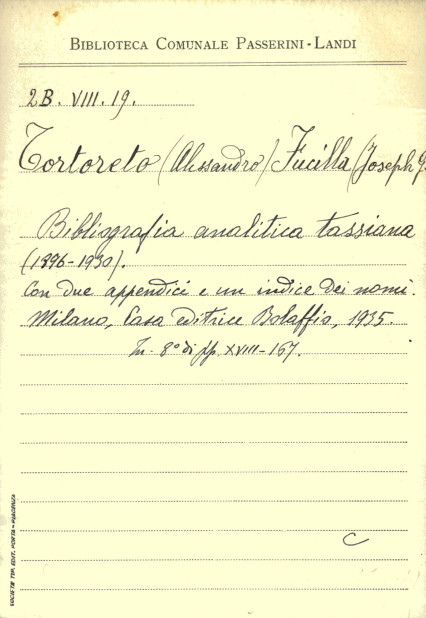 BIBLIOTECA COMUNALE PASSERINI-LANDI
2B. VIII. 19.
Tortoreto (Alessandro) Fucilla (Joseph G.
Bibliografia analitica tassiana
(1896-1930).
Con due appendici e un indice dei nomi.
Milano, Casa editrice Bolaffio, 1935.
In-8° di pp. XVIII-167.
C
SOCIETÀ TIP. EDIT. PORTA - PIACENZA